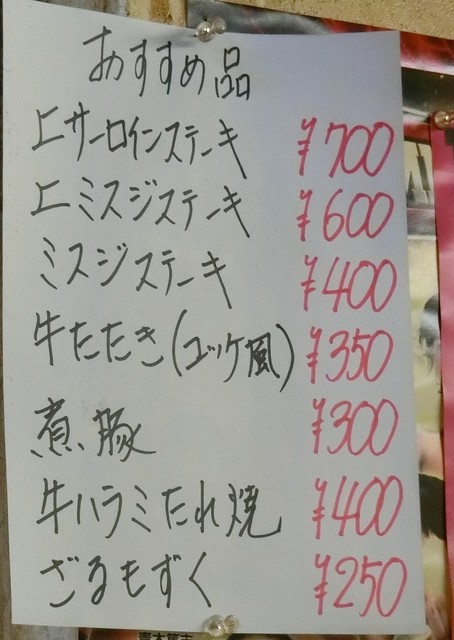 おすすめ品
上サーロインステーキ ¥700
上ミスジステーキ ¥600
ミスジステーキ ¥400
牛たたき(ユッケ風) ¥350
煮豚 ¥300
牛ハラミたれ焼 ¥400
ざるもずく ¥250